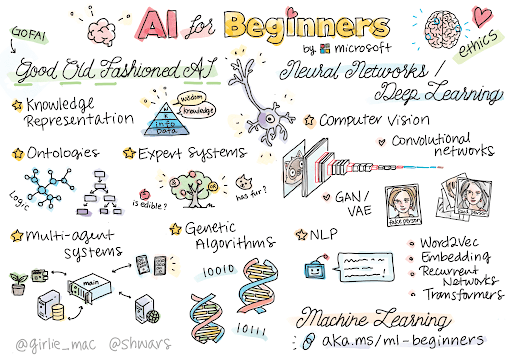 GOFAI
AI for Beginners
by microsoft
ethics
Good Old Fashioned AI
Knowledge
Representation
wisdom
knowledge
info
Data
Ontologies
Logic
Expert Systems
is edible?
OR
has fur?
Multi-agent
systems
main
Genetic
Algorithms
10010
10111
Neural Networks /
Deep Learning
Computer Vision
Convolutional
networks
GAN/
VAE
fake person
NLP
Word2Vec
Embedding
Recurrent
Networks
Transformers
Machine Learning
aka.ms/ml-beginners
@girlie_mac @shwars